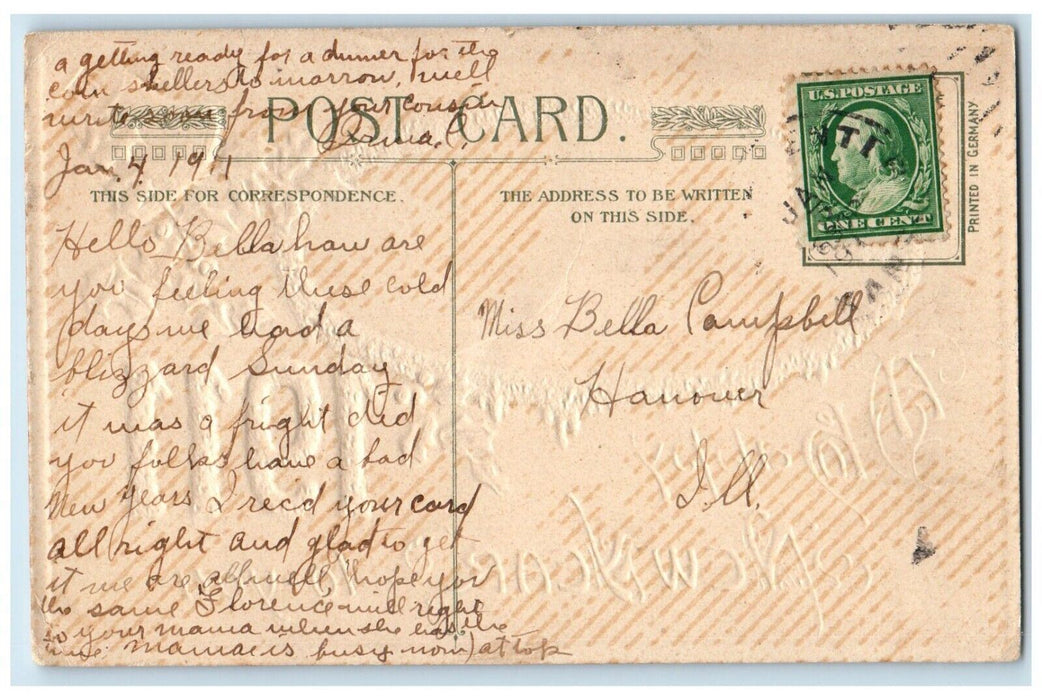 a getting ready for a dinner for the
corn shellers to morrow, will
write soon from your cousin
POST CARD.
Jan. 4 1911
THIS SIDE FOR CORRESPONDENCE.
THE ADDRESS TO BE WRITTEN
ON THIS SIDE.
U.S. POSTAGE
ONE CENT
PRINTED IN GERMANY
JAN
KAN
Hello Bella how are
you feeling these cold
days we had a
blizzard Sunday
it was a fright did
you folks have a bad
New Years I rec'd your card
all right and glad to get
it we are all well hope you
the same Florence will right
to your mama when she has the
time mama is busy now) at top
Miss Bella Campbell
Hanover
Ill.
1911
A Happy
New Year